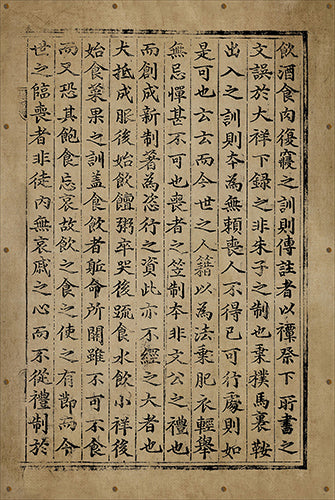 飲酒食肉復寢之訓則傳註者以禫祭下所書之
文誤於大祥下録之非朱子之制也乗撲馬裹鞍
出入之訓則本為無賴喪人不得已可行處則如
是可也云云而今世之人籍以為法乗肥衣輕舉
無忌憚甚不可也喪者之笠制本非文公之禮也
而創成新制著為恣行之資此亦不經之大者也
大抵成服後始飲饘粥卒哭後疏食水飲小祥後
始食菜果之訓蓋食飲者軀命所關雖不可不食
而又恐其飽食忘哀故飲之食之使之有節而今
世之臨喪者非徒內無哀戚之心而不從禮制於